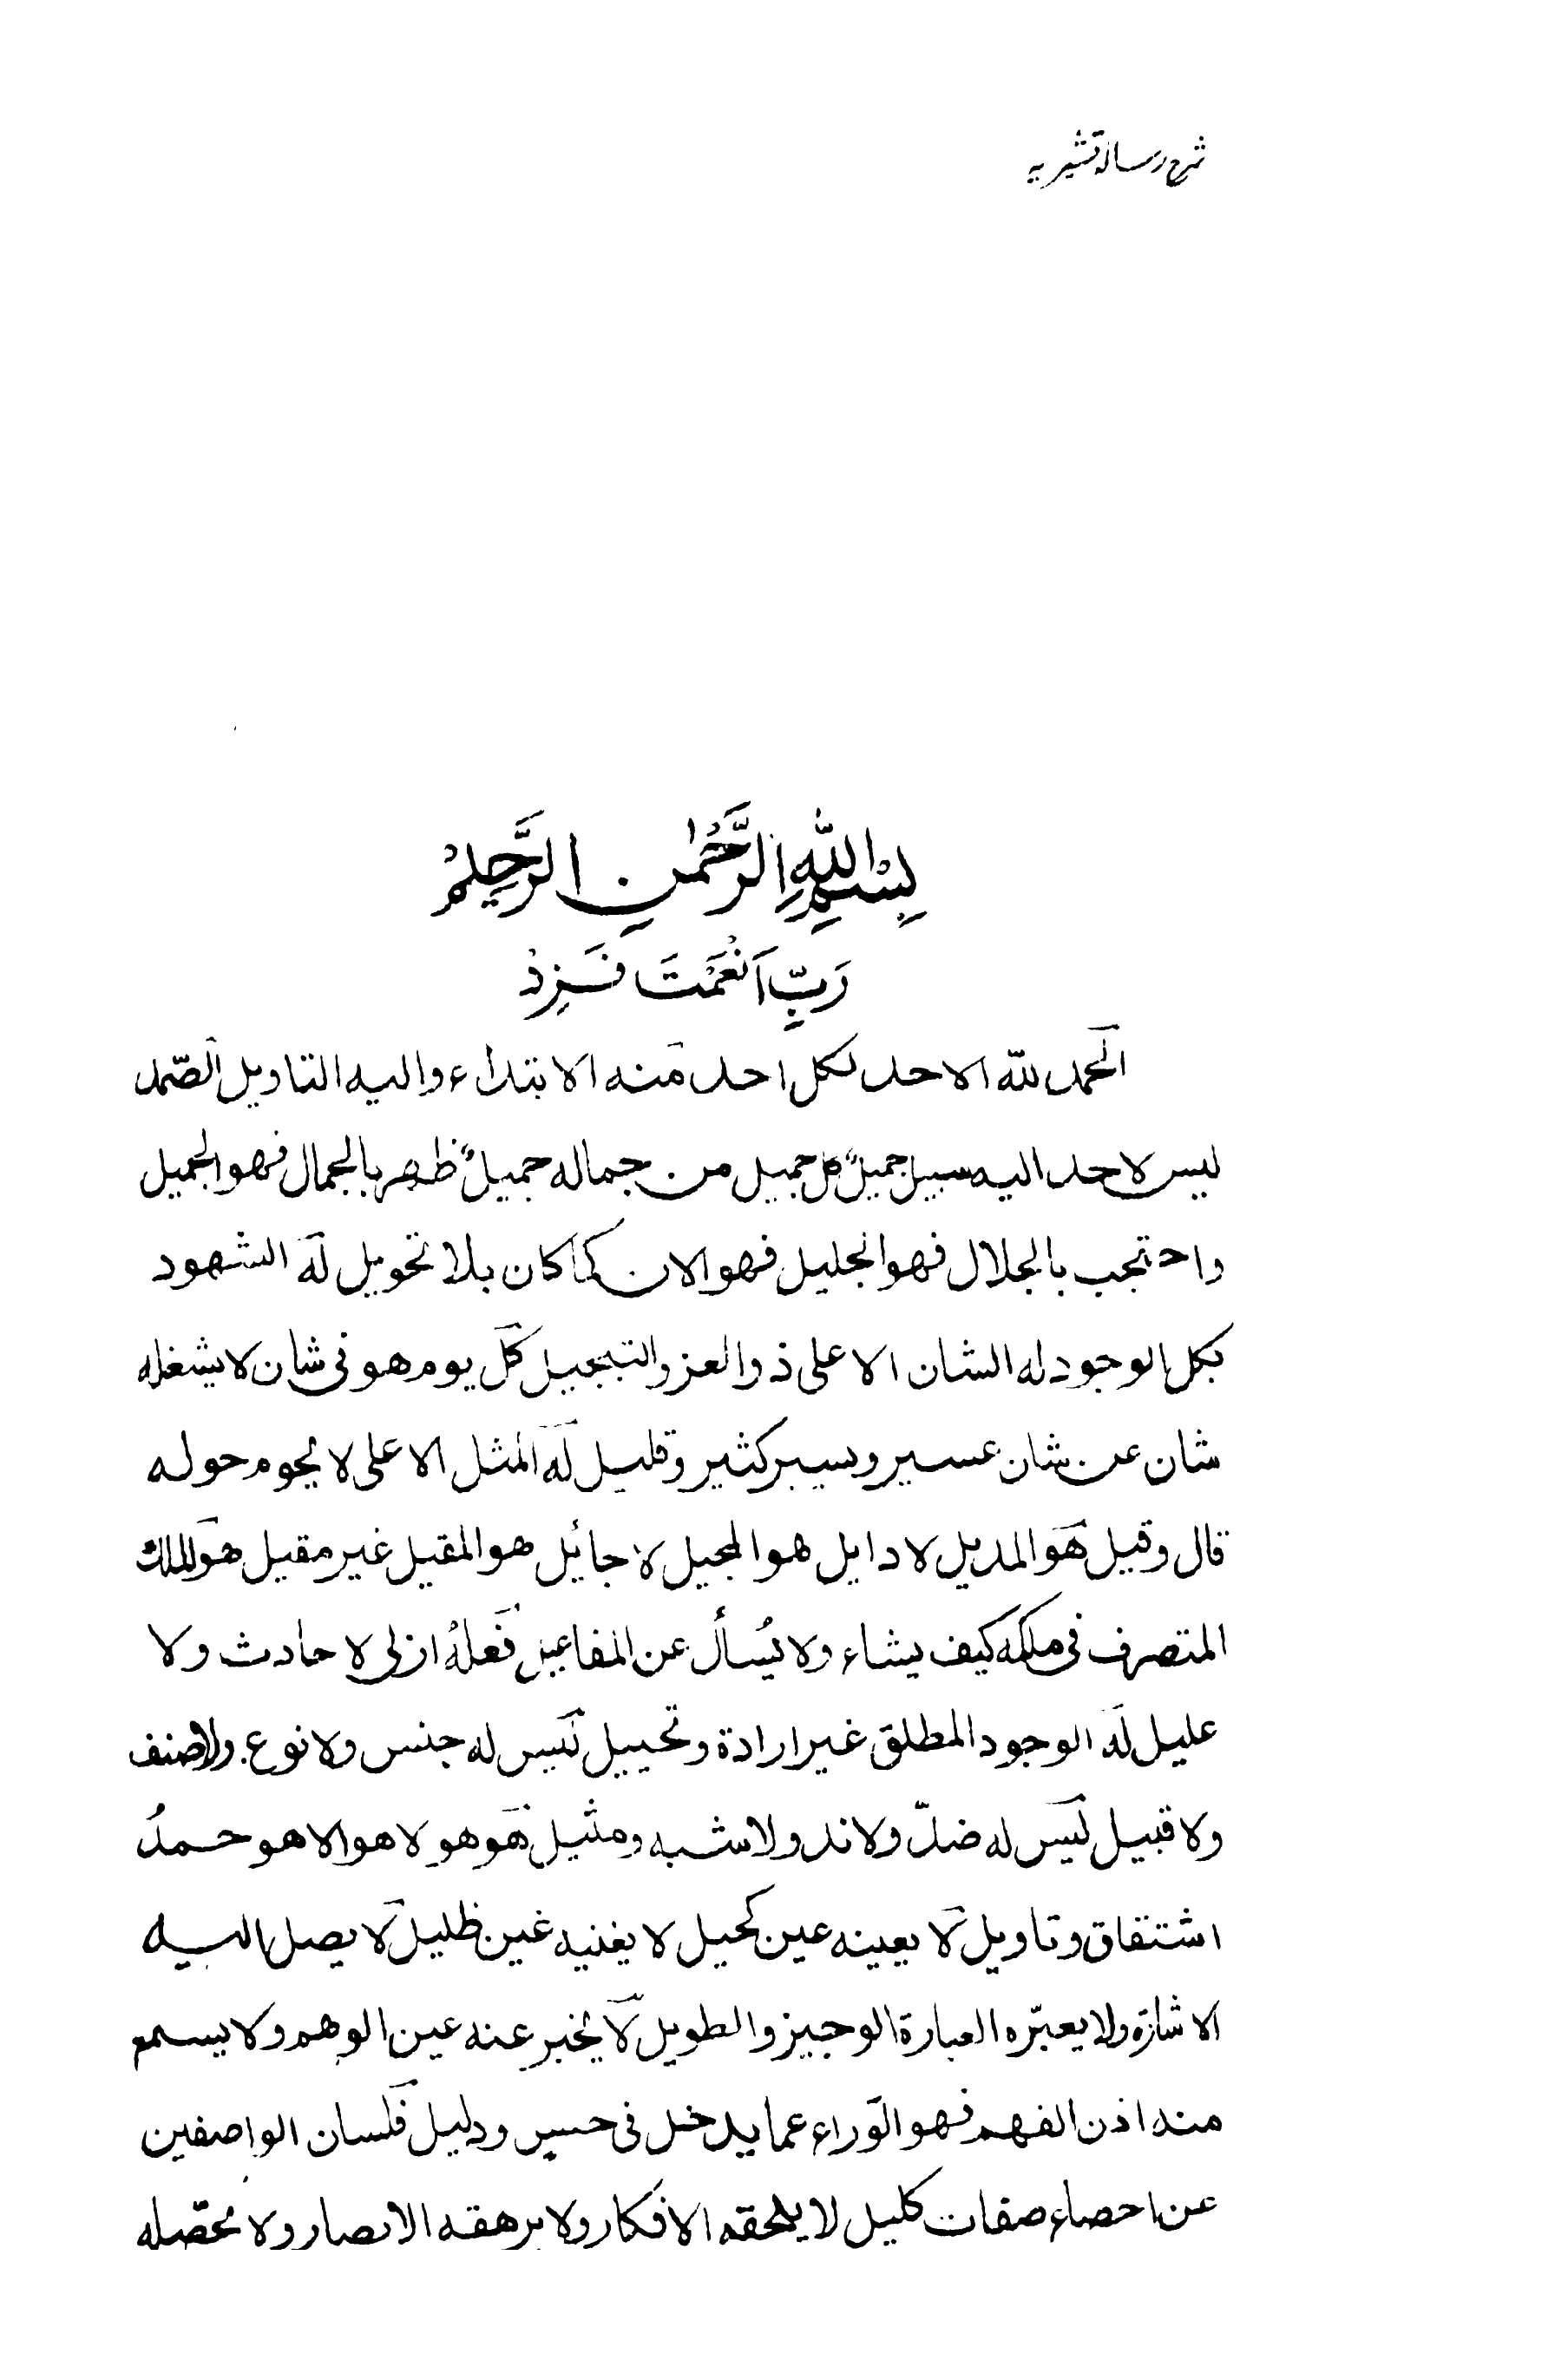 شرح رساله قشیریه
بِسْمِ اللهِ الرَّحْمٰنِ الرَّحِيْمِ
رَبِّ اَنْعَمْتَ فَزِدْ
الحمد لله الاحد لكل احد منه الابتداء واليه التاويل الصّمد
ليس لاحد اليه سبيل جميلٌ كل جميل من جماله جميلٌ ظهر بالجمال فهو الجميل
واحتجب بالجلال فهو الجليل فهو الان كما كان بلا تحويل له الشهود
بكل الوجود له الشان الاعلى ذو العز والتبجيل كل يوم هو فى شان لا يشغله
شان عن شان عسير ويسير كثير وقليل له المثل الاعلى لا يحوم حوله
قال وقيل هو المديل لا دايل هو المجيل لا جائيل هو المقيل غير مقيل هو الملك
المتصرف فى ملكه كيف يشاء ولا يُسأل عن المفاعيل فعلهُ ازلى لا حادث ولا
عليل له الوجود المطلق غير ارادة وتحييل ليس له جنس ولا نوع ولا صنف
ولا قبيل ليس له ضدّ ولا ند ولا شبه ومثيل هو هو لا هو الا هو حمدُ
اشتقاق وتاويل لا يعينه عين كحيل لا يغنيه غين ظليل لا يصل اليه
الاشارة ولا يعبّره العبارة الوجيز والطويل لا يخبر عنه عين الوهم ولا يسمع
منه اذن الفهم فهو الوراء عما يدخل فى حس ودليل فلسان الواصفين
عن احصاء صفات كليل لا يلحقه الافكار ولا يرهقه الابصار ولا يحصّله